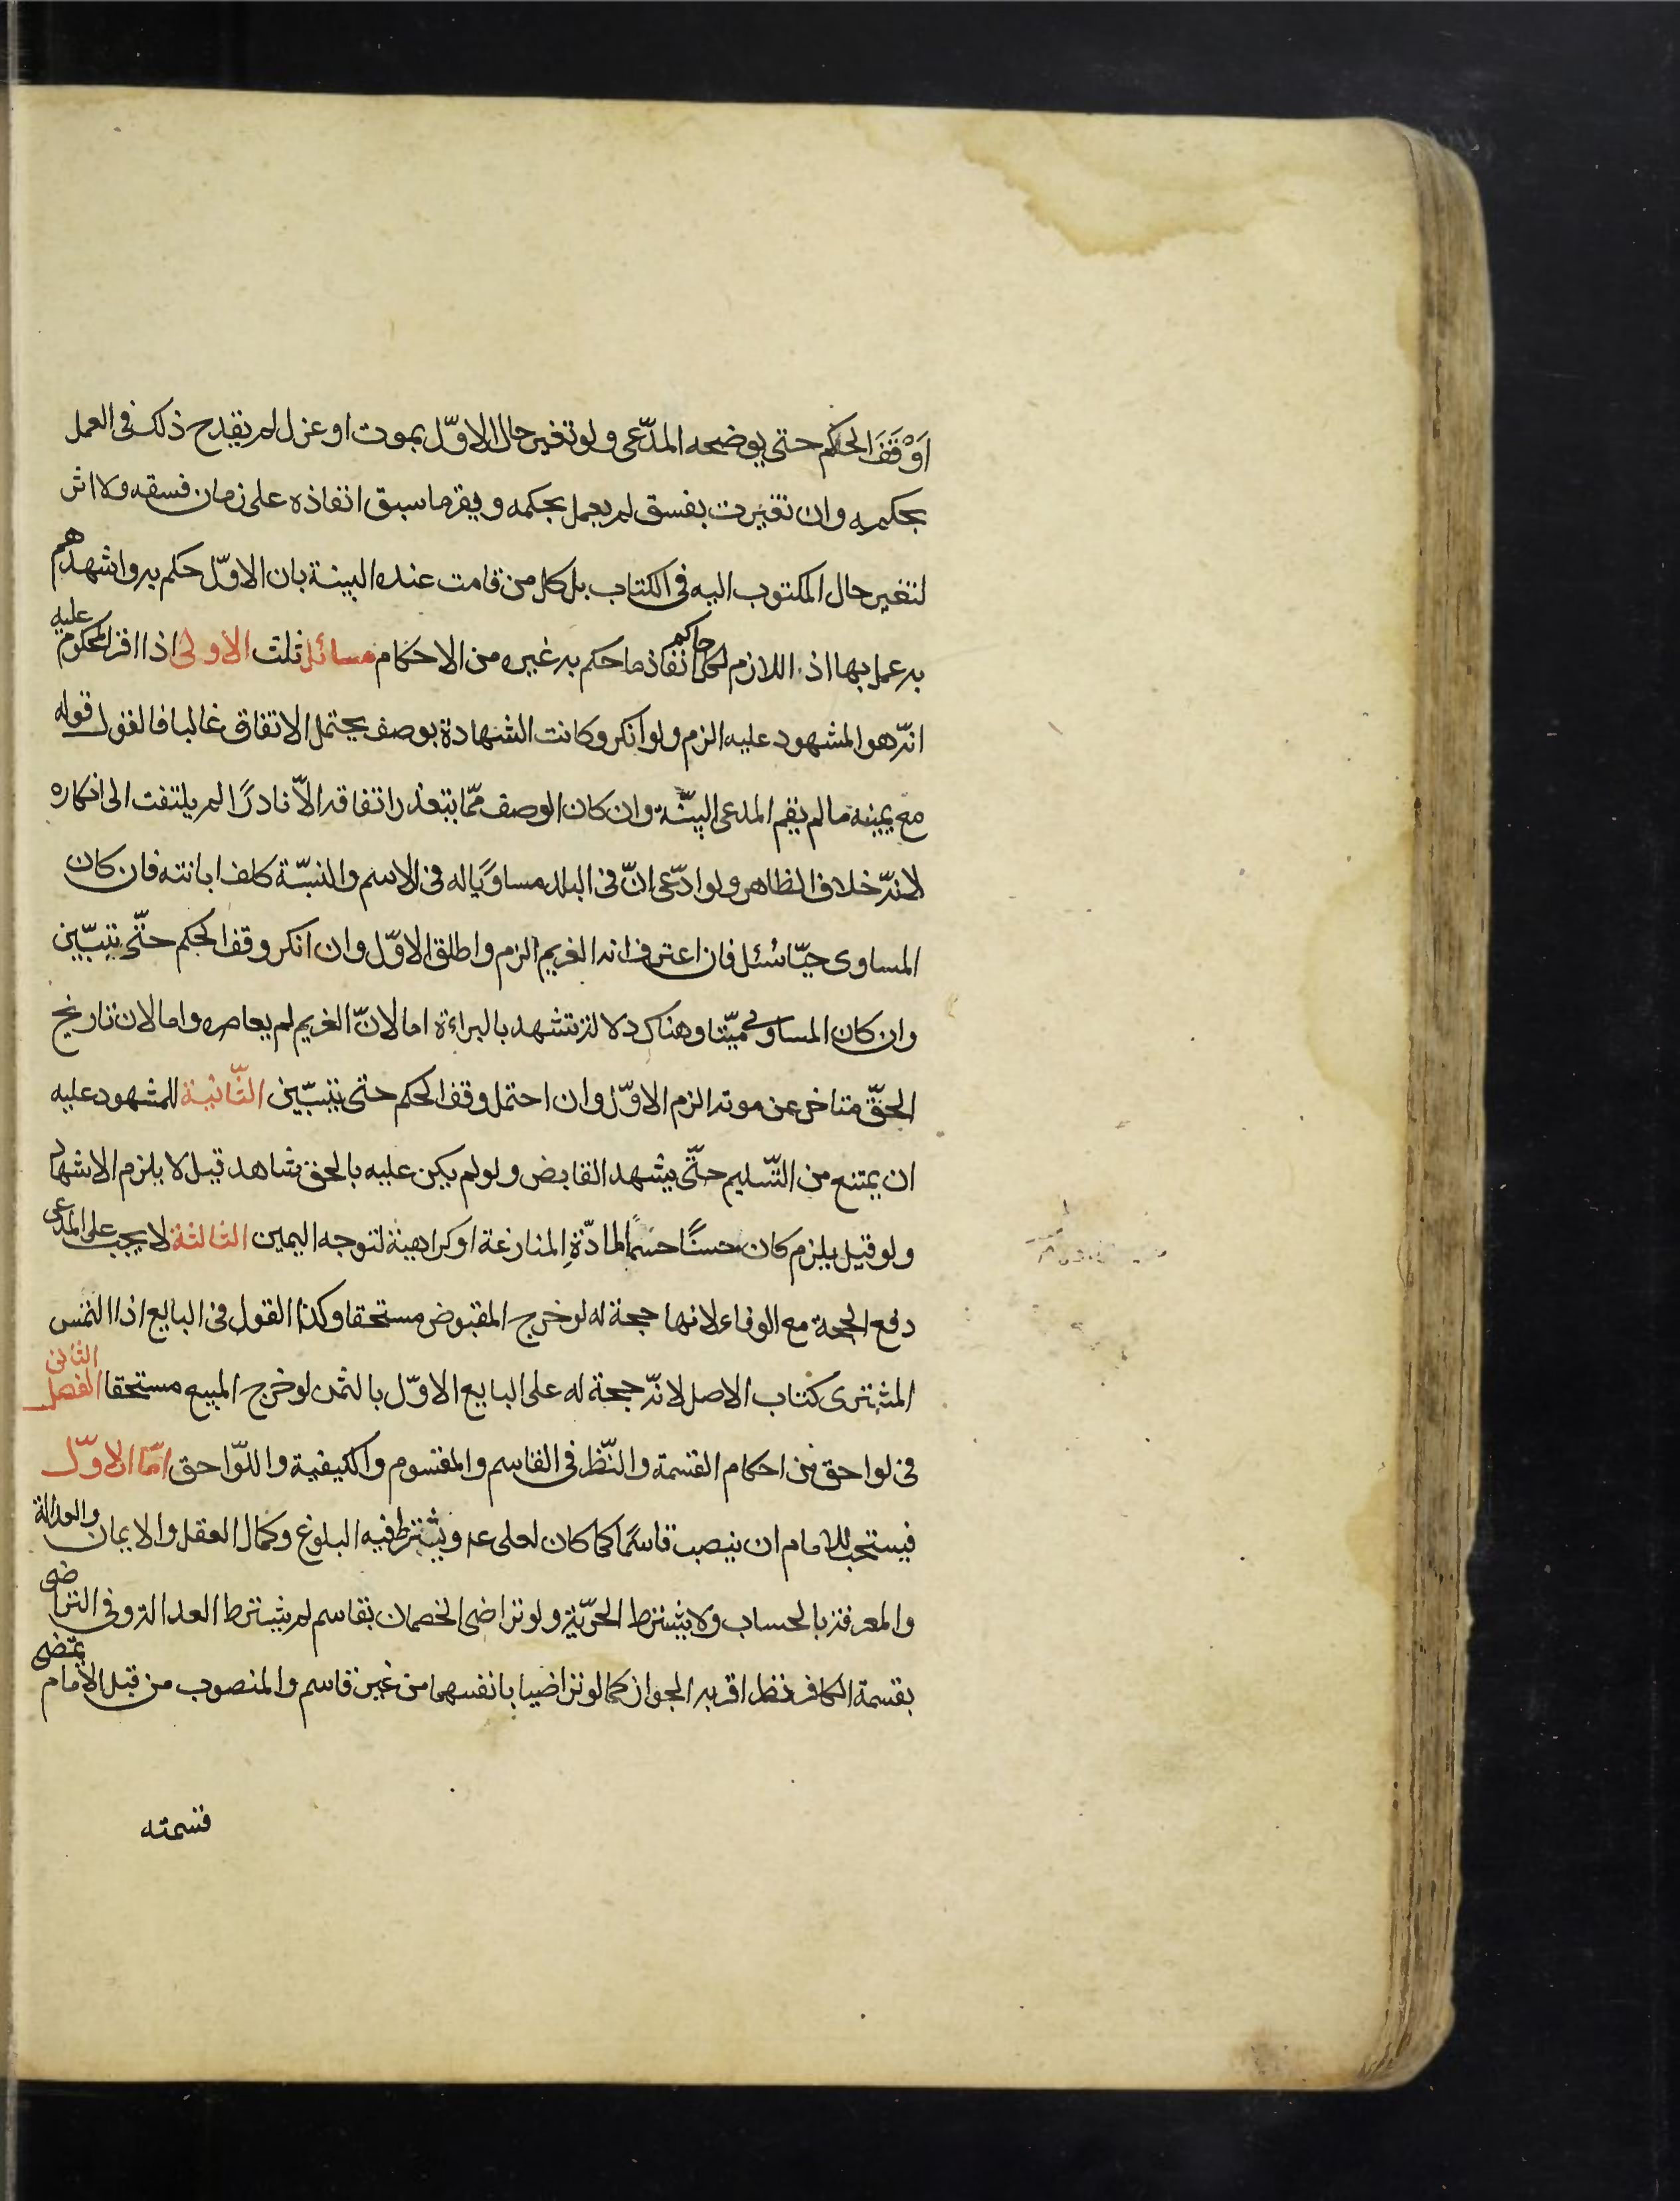 اَوْقَفَ الحكم حتى يوضحه المدّعى ولو تغير حال الاوّل بموت او عزل لم يقدح ذلك فى العمل
بحكمه وان تغيرت بفسق لم يعمل بحكمه ويقر ما سبق انفاذه على زمان فسقه ولا اثر
لتغير حال المكتوب اليه فى الكتاب بل كل من قامت عنده البينة بان الاوّل حكم به واشهدهم
به عمل بها اذ اللازم لكل حاكم انفاذ ما حكم به غيره من الاحكام مسائل ثلث الاولى اذا اقر المحكوم عليه
انّه هو المشهود عليه الزم ولو انكر وكانت الشهادة بوصف يحتمل الاتفاق غالبا فالقول قوله
مع يمينه ما لم يقم المدعى البيّنة وان كان الوصف ممّا يتعذر اتفاقه الاّ نادرًا لم يلتفت الى انكاره
لانّه خلاف الظاهر ولو ادّعى انّ فى البلد مساويًا له فى الاسم والنسبّة كلف ابانته فان كان
المساوى حيّا سئل فان اعترف انه الغريم الزم واطلق الاوّل وان انكر وقف الحكم حتّى يتبيّن
وان كان المساوى ميّتا وهناك دلالة تشهد بالبراءة اما لانّ الغريم لم يعاصره واما لان تاريخ
الحقّ متاخر عن موته الزم الاوّل وان احتمل وقف الحكم حتى يتبيّن الثّانية للمشهود عليه
ان يمتنع من التّسليم حتّى يشهد القابض ولو لم يكن عليه بالحق شاهد قيل لا يلزم الاشهاد
ولو قيل يلزم كان حسنًا حسمًا لمادّةِ المنازعة او كراهية لتوجه اليمين الثالثة لا يجب على المدعى
دفع الحجة مع الوفاء لانها حجة له لو خرج المقبوض مستحقا وكذا القول فى البايع اذا التمس
المشترى كتاب الاصل لانّه حجة له على البايع الاوّل بالثمن لو خرج المبيع مستحقا الفصل الثانى
فى لواحق من احكام القسمة والنّظر فى القاسم والمقسوم والكيفية واللّواحق امّا الاوّل
فيستحب للامام ان ينصب قاسمًا كما كان لعلى عم ويشترط فيه البلوغ وكمال العقل والايمان والعدالة
والمعرفة بالحساب ولا يشترط الحرّية ولو تراضى الخصمان بقاسم لم يشترط العدالة وفى التراضى
بقسمة الكافر نظر اقربه الجواز كما لو تراضيا بانفسهما من غير قاسم والمنصوب من قبل الامام تمضى
قسمته